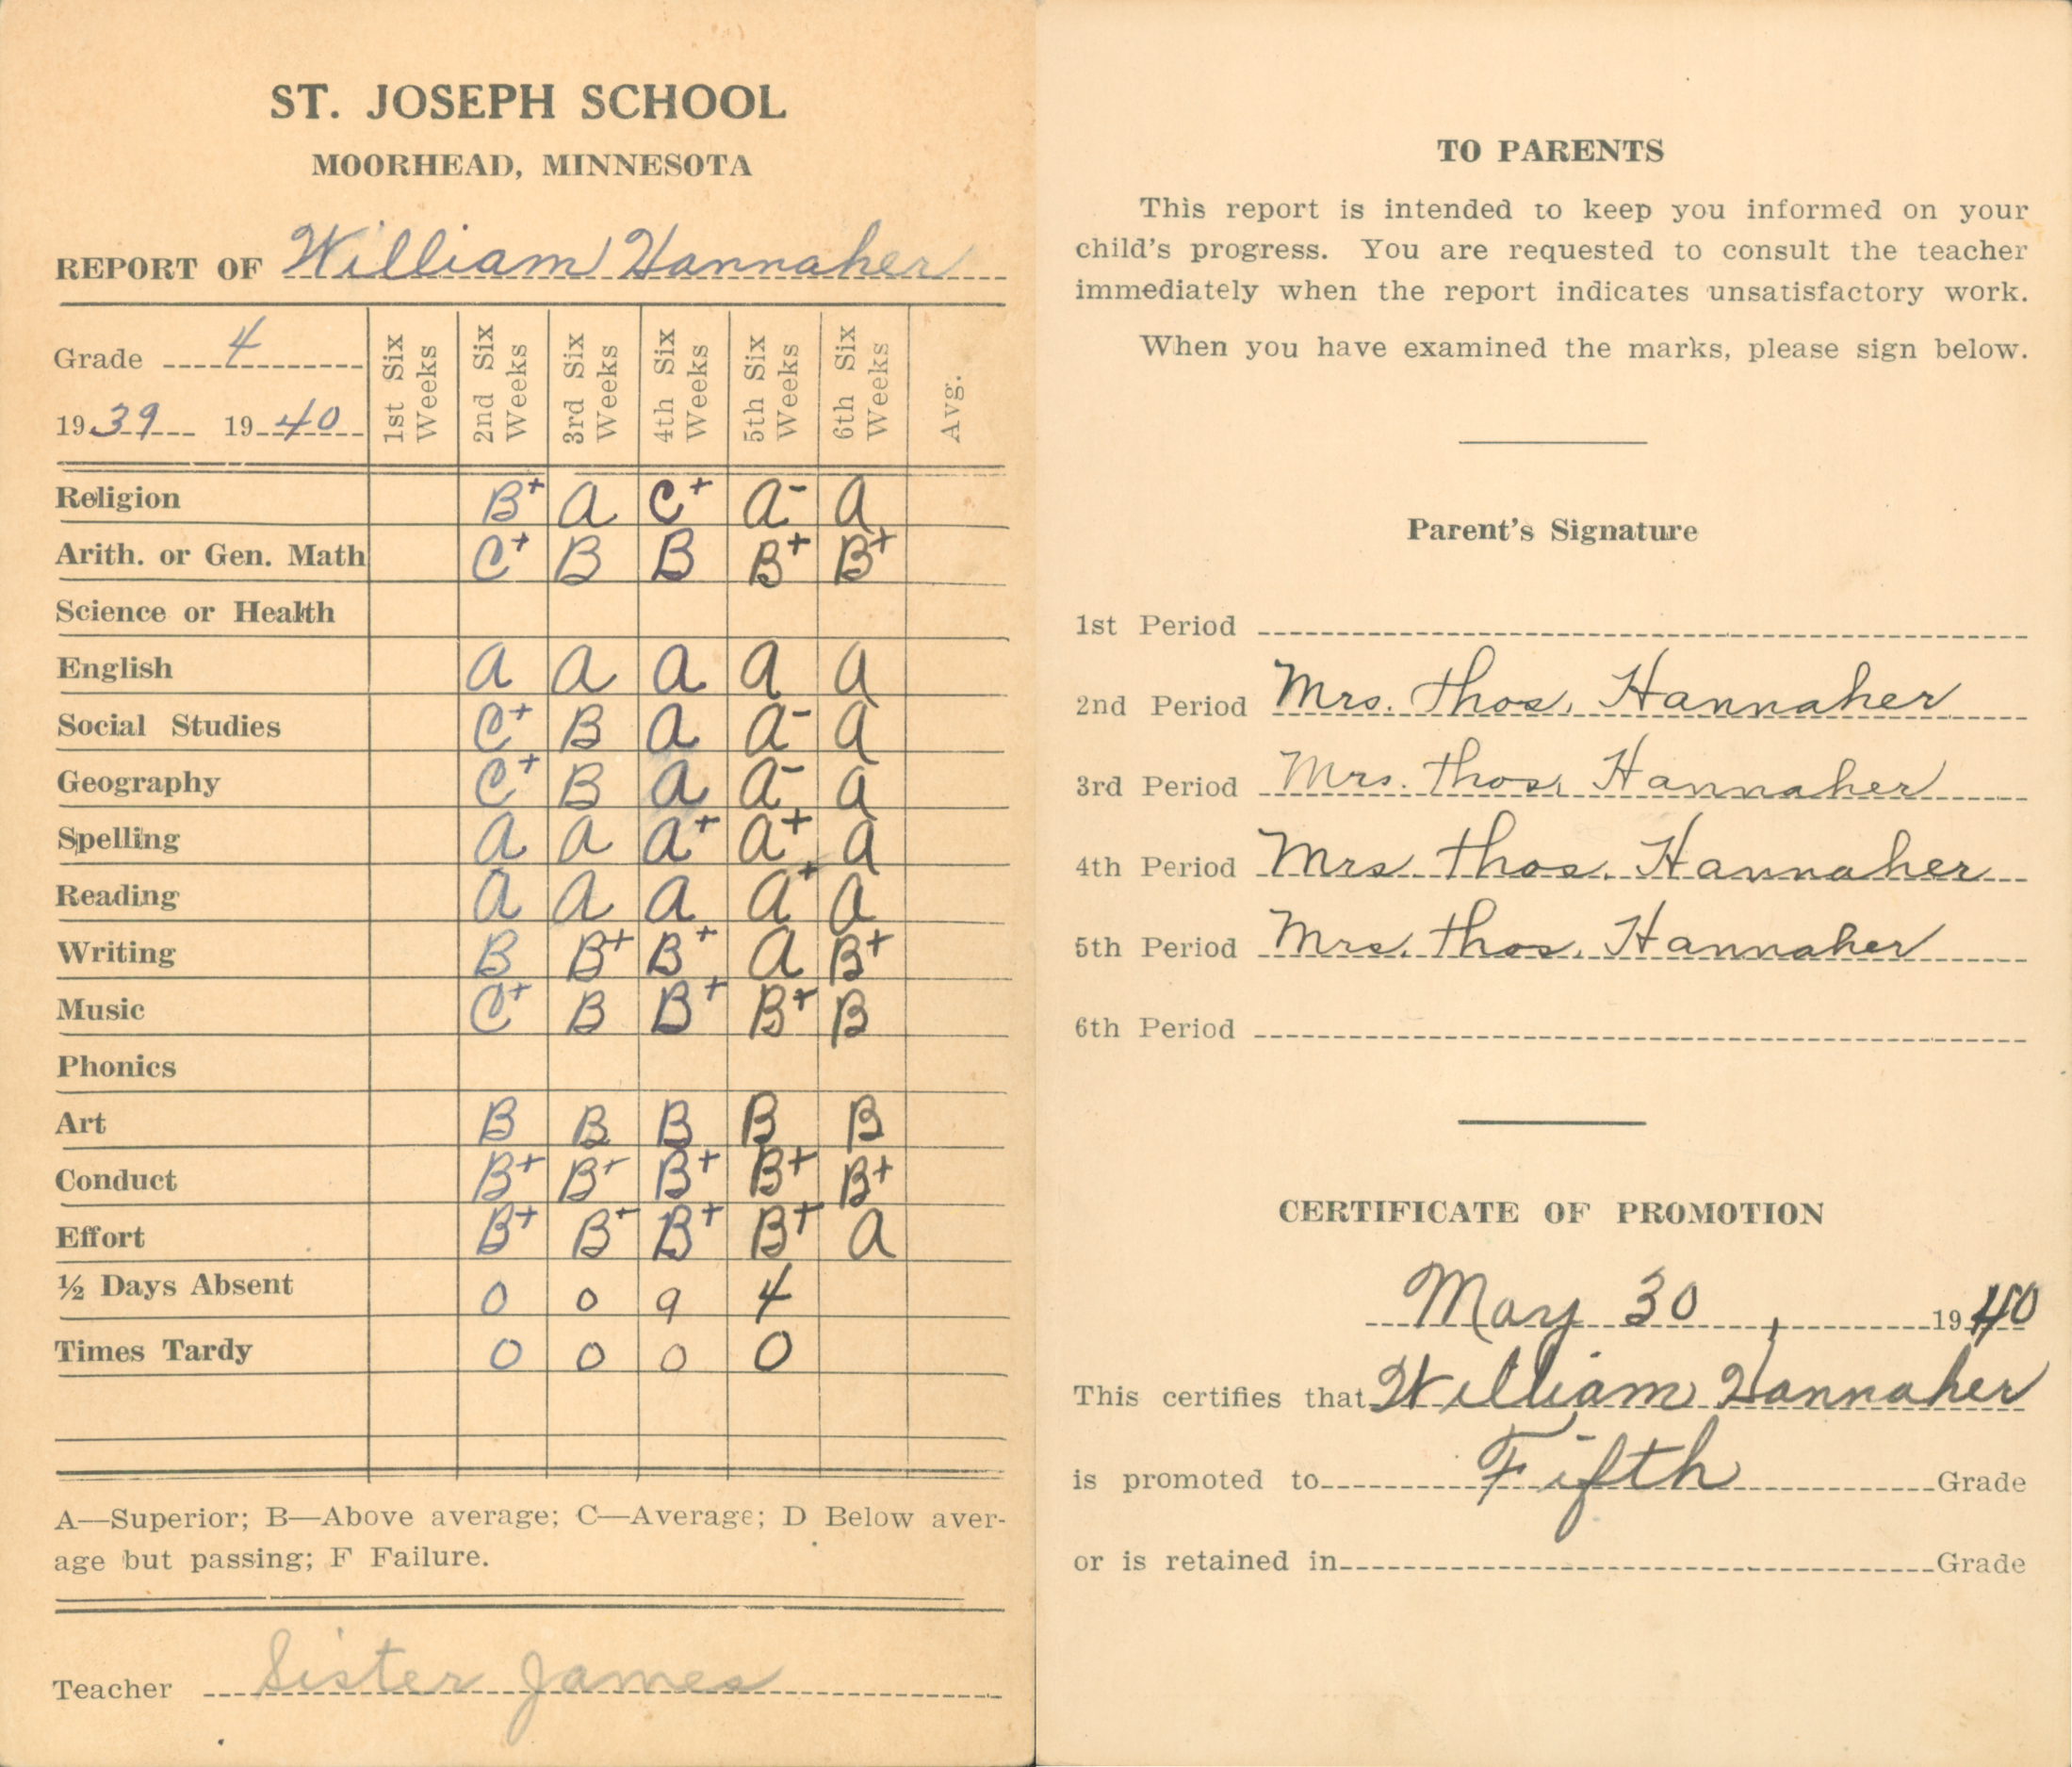 ST. JOSEPH SCHOOL
MOORHEAD, MINNESOTA
REPORT OF William Hannaher
Grade 4
1939 1940
1st Six Weeks
2nd Six Weeks
3rd Six Weeks
4th Six Weeks
5th Six Weeks
6th Six Weeks
Avg.
Religion B+ A C+ A- A
Arith. or Gen. Math C+ B B B+ B+
Science or Health
English A A A A A
Social Studies C+ B A A- A
Geography C+ B A A- A
Spelling A A A+ A+ A
Reading A A A A+ A
Writing B B+ B+ A B+
Music C+ B B+ B+ B
Phonics
Art B B B B B
Conduct B+ B+ B+ B+ B+
Effort B+ B+ B+ B+ A
½ Days Absent 0 0 9 4
Times Tardy 0 0 0 0
A—Superior; B—Above average; C—Average; D Below aver-
age but passing; F Failure.
Teacher Sister James
TO PARENTS
This report is intended to keep you informed on your
child's progress. You are requested to consult the teacher
immediately when the report indicates unsatisfactory work.
When you have examined the marks, please sign below.
Parent's Signature
1st Period
2nd Period Mrs. Thos. Hannaher
3rd Period Mrs. Thos. Hannaher
4th Period Mrs. Thos. Hannaher
5th Period Mrs. Thos. Hannaher
6th Period
CERTIFICATE OF PROMOTION
May 30, 1940
This certifies that William Hannaher
is promoted to Fifth Grade
or is retained in Grade